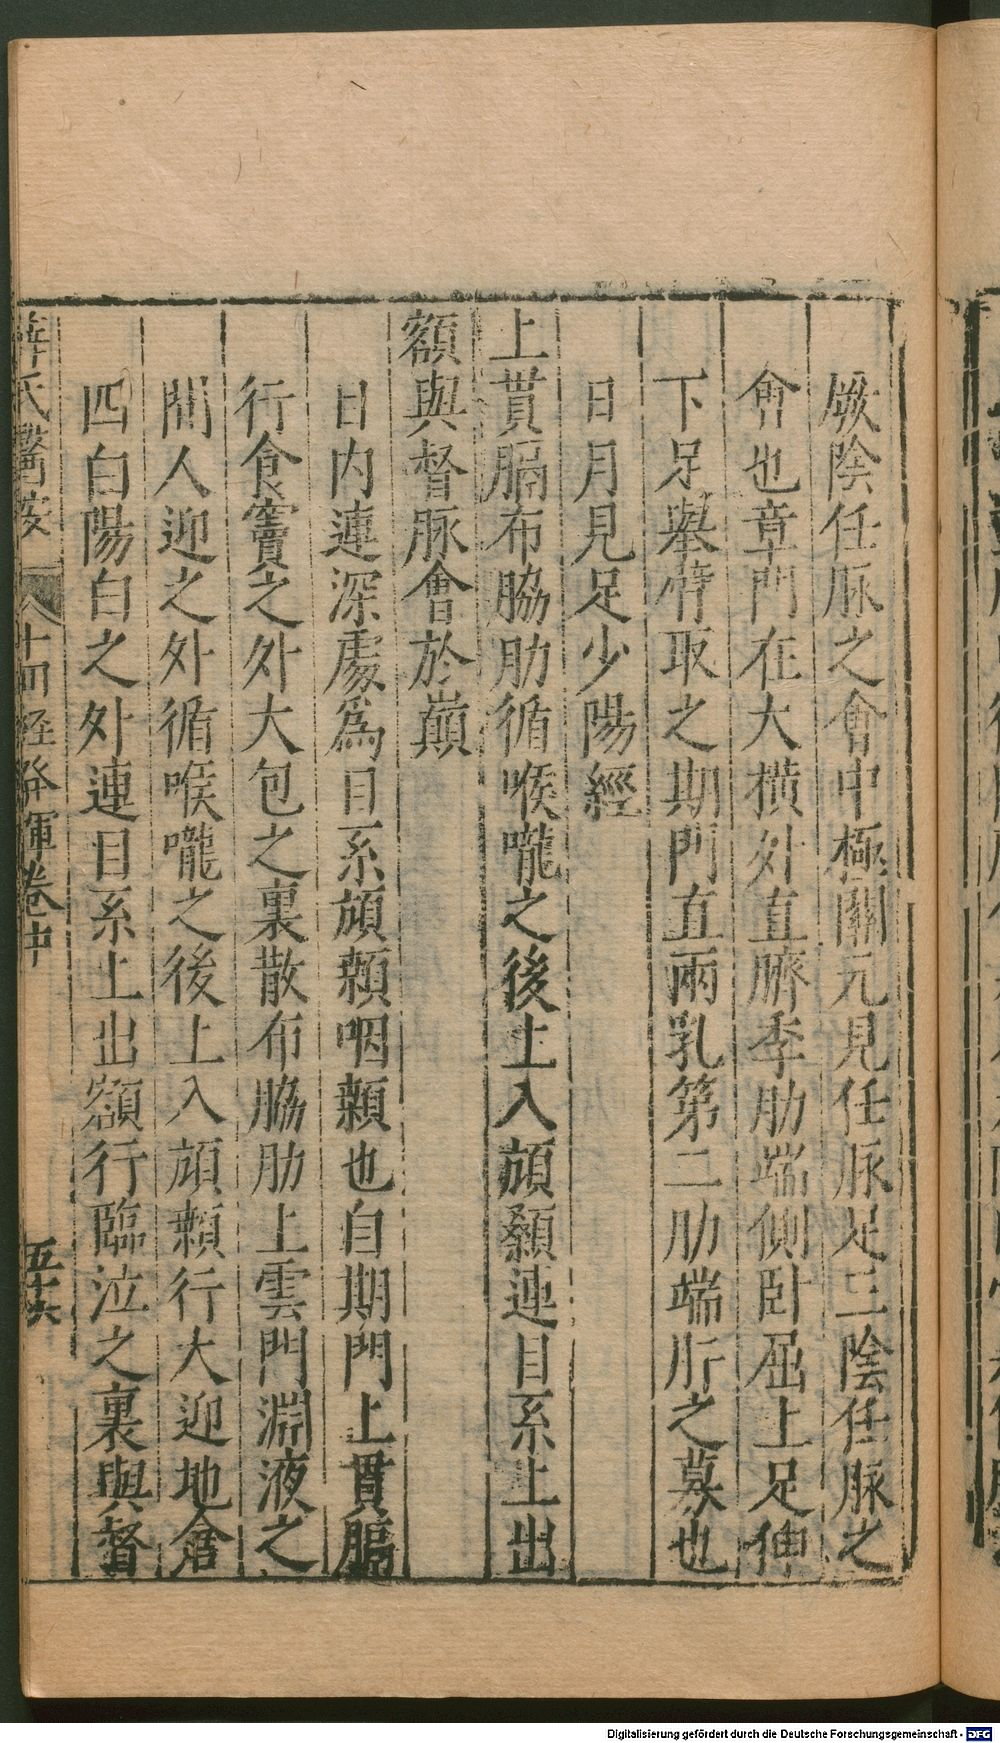 厥陰任脉之會中極關元見任脉足三陰任脉之
會也章門在大橫外直臍季肋端側卧屈上足伸
下足舉臂取之期門直兩乳第二肋端肝之募也
日月見足少陽經
上貫膈布脇肋循喉嚨之後上入頏顙連目系上出
額與督脉會於巔
目内連深處爲目系頏顙咽顙也自期門上貫膈
行食竇之外大包之裏散布脇肋上雲門淵液之
間人迎之外循喉嚨之後上入頏顙行大迎地倉
四白陽白之外連目系上出額行臨泣之裏與督
薛氏醫按 十四經發揮卷中 五十六
Digitalisierung gefördert durch die Deutsche Forschungsgemeinschaft - DFG